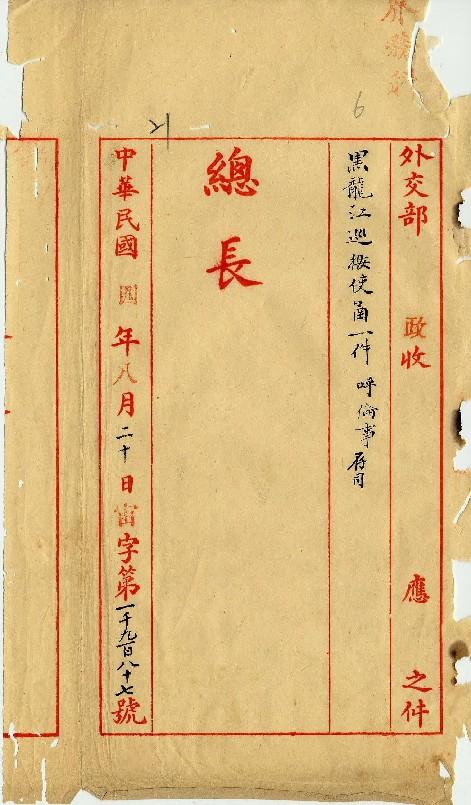 6
外交部 政收 應 之件
黑龍江巡按使函一件 呼倫事 存司
總長
中華民國 四 年 八 月 二十 日 宙 字第 一千九百八十七 號